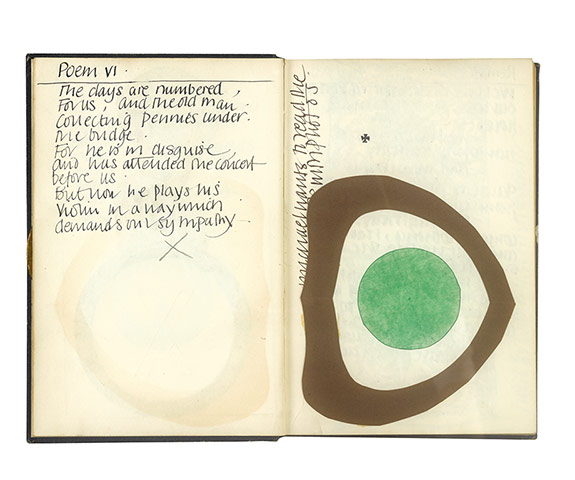 Poem VI.
The days are numbered,
For us, and the old man.
Collecting Pennies under.
the bridge.
For he is in disguise,
and has attended the concert
before us.
But now he plays his
Violin in a way which
demands our sympathy
X
wants to read the
photos.